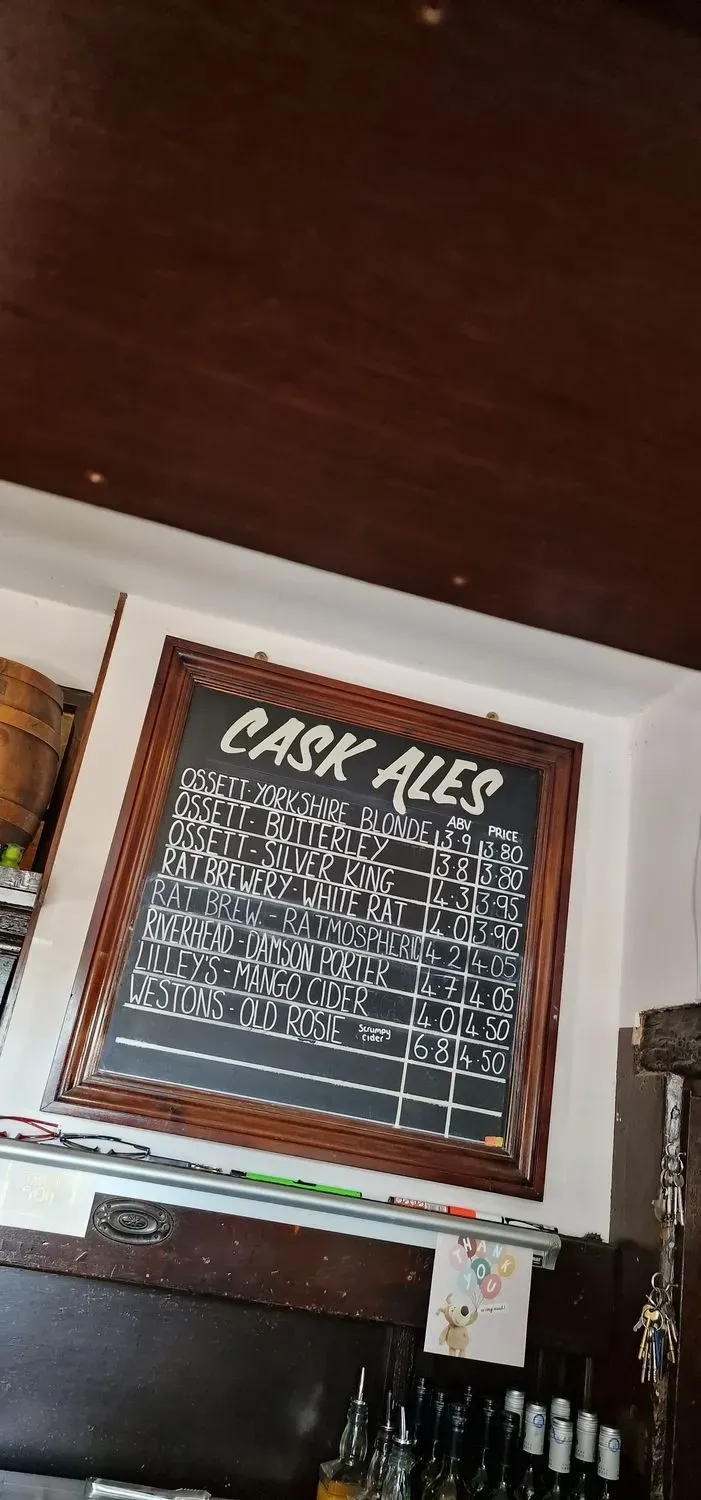 CASK ALES
ABV PRICE
OSSETT· YORKSHIRE BLONDE 3·9 3·80
OSSETT- BUTTERLEY 3·8 3·80
OSSETT-SILVER KING 4·3 3·95
RAT BREWERY- WHITE RAT 4·0 3·90
RAT BREW. - RATMOSPHERIC 4·2 4·05
RIVERHEAD -DAMSON PORTER 4·7 4·05
LILLEY'S -MANGO CIDER 4·0 4·50
WESTONS - OLD ROSIE Scrumpy cider 6·8 4·50
THANK
YOU